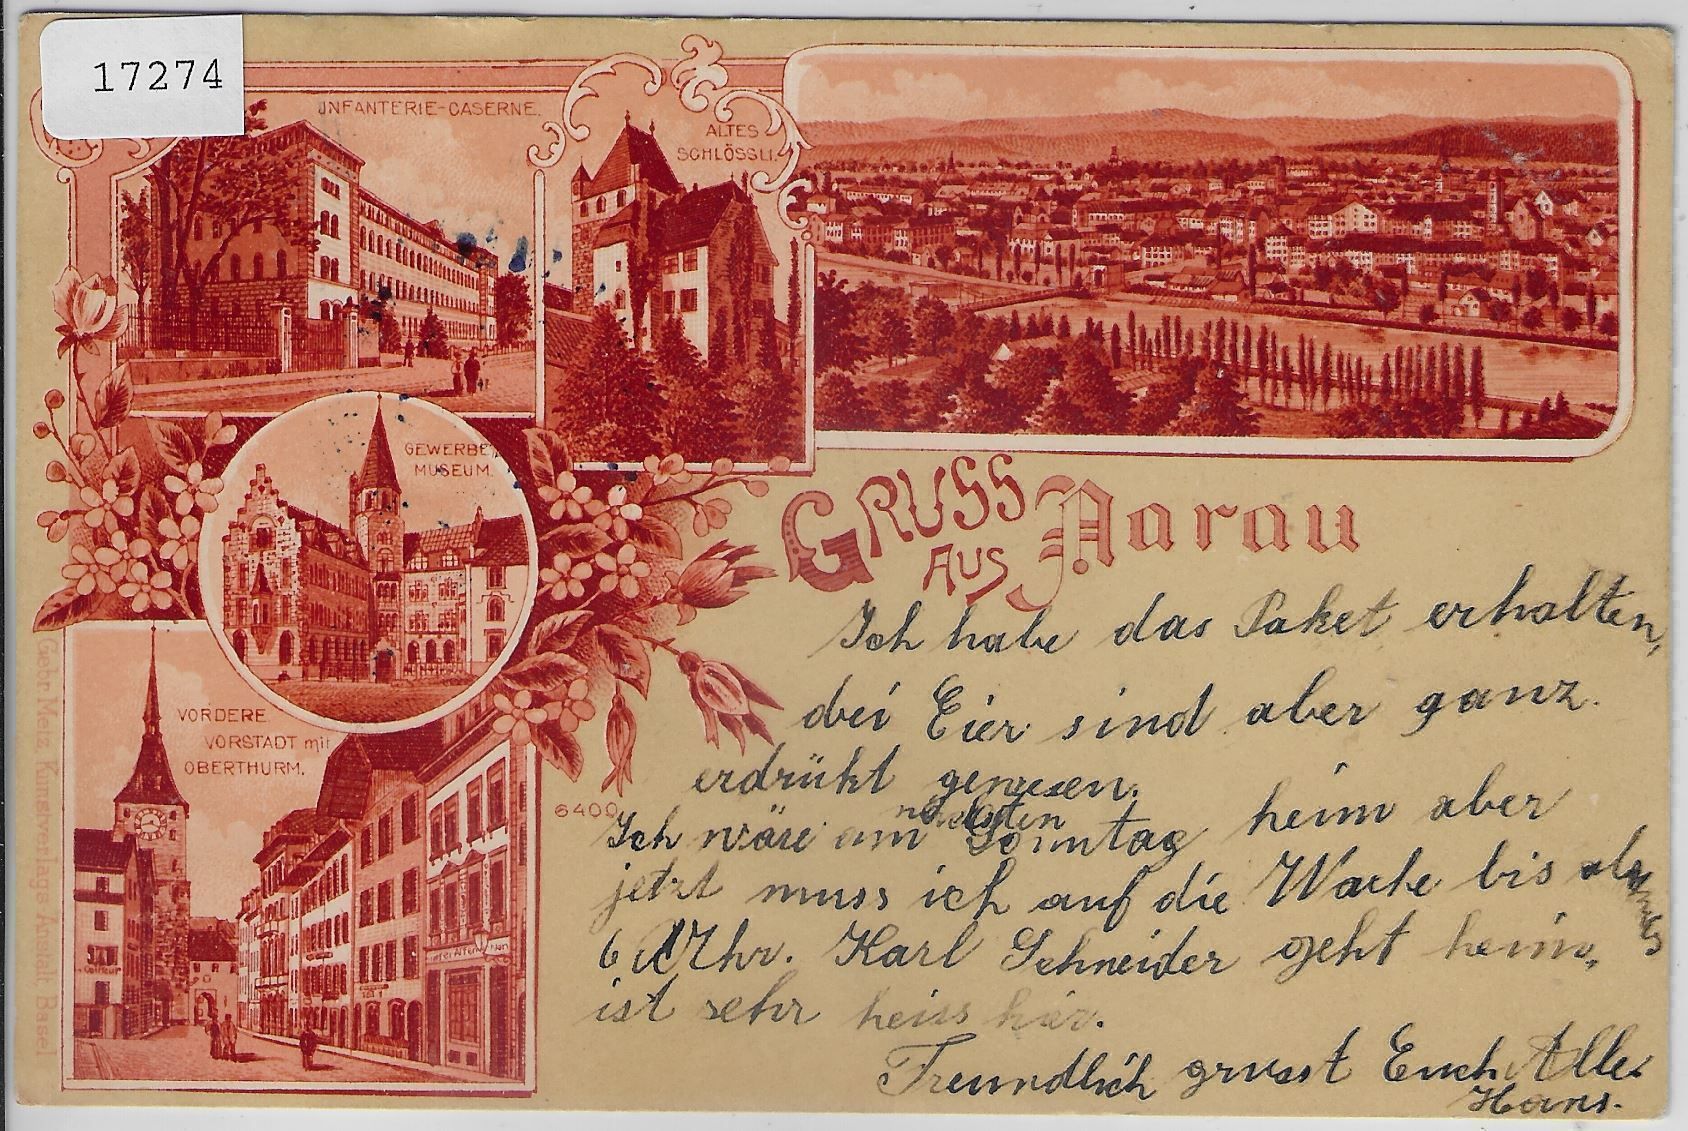 17274
INFANTERIE-CASERNE.
ALTES
SCHLÖSSLI.
GEWERBE
MUSEUM.
VORDERE
VORSTADT mit
OBERTHURM.
Gebr. Metz, Kunstverlags-Anstalt, Basel
6400
GRUSS
AUS Aarau
Ich habe das Paket erhalten,
dei Eier sind aber ganz.
erdrükt gewesen.
nächsten
Ich wäre am Sonntag heim aber
jetzt muss ich auf die Wache bis
6 Uhr. Karl Schneider geht heim,
ist sehr heiss hier.
Freundlich grusst Euch Alle
Hans.